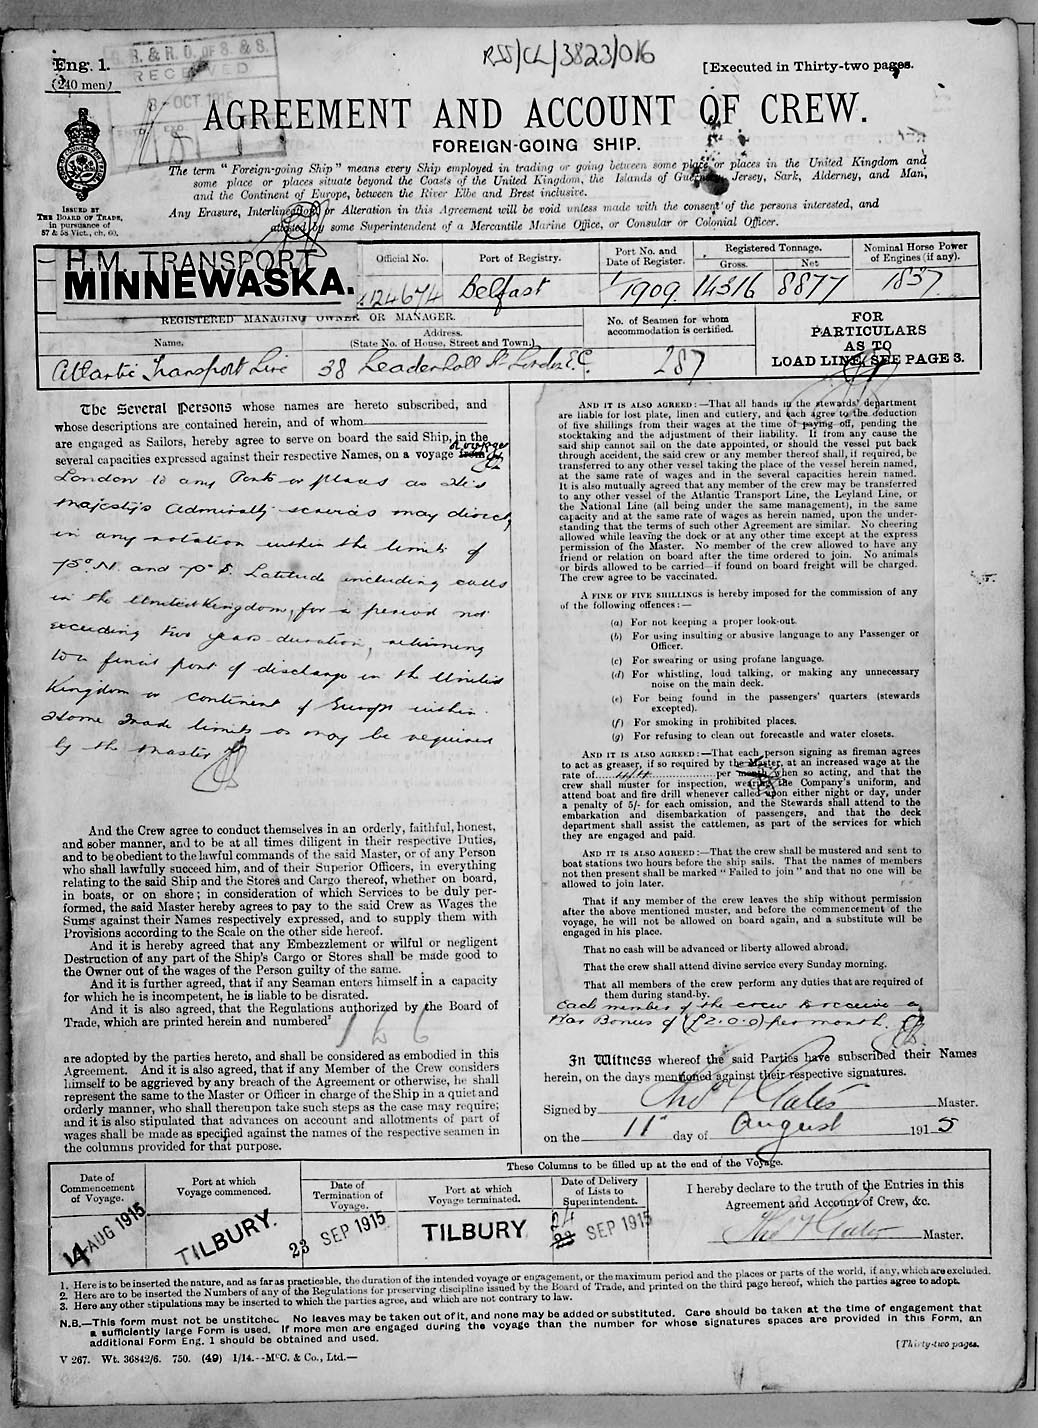 Eng. 1.
(240 men)
G. R. & R. O. OF S. & S.
RECEIVED
8 - OCT 1915
RSS/CL/3823/016
[Executed in Thirty-two pages.
AGREEMENT AND ACCOUNT OF CREW.
FOREIGN-GOING SHIP.
ISSUED BY
THE BOARD OF TRADE,
in pursuance of
57 & 58 Vict., ch. 60.
The term "Foreign-going Ship" means every Ship employed in trading or going between some place or places in the United Kingdom and
some place or places situate beyond the Coasts of the United Kingdom, the Islands of Guernsey, Jersey, Sark, Alderney, and Man,
and the Continent of Europe, between the River Elbe and Brest inclusive.
Any Erasure, Interlineation, or Alteration in this Agreement will be void unless made with the consent of the persons interested, and
attested by some Superintendent of a Mercantile Marine Office, or Consular or Colonial Officer.
H.M. TRANSPORT
MINNEWASKA.
Official No.
124674
Port of Registry.
Belfast
Port No. and
Date of Register.
1/1909
Registered Tonnage.
Gross.
14316
Net
8877
Nominal Horse Power
of Engines (if any).
1837
REGISTERED MANAGING OWNER OR MANAGER.
Name.
Address.
(State No. of House, Street and Town.)
Atlantic Transport Line
38 Leadenhall St London E.C.
No. of Seamen for whom
accommodation is certified.
287
FOR
PARTICULARS
AS TO
LOAD LINE, SEE PAGE 3.
The Several Persons whose names are hereto subscribed, and
whose descriptions are contained herein, and of whom
are engaged as Sailors, hereby agree to serve on board the said Ship, in the
several capacities expressed against their respective Names, on a voyage
London to any Ports or places as His
Majesty's Admiralty services may direct,
in any rotation within the limits of
75° N. and 75° S. Latitude including calls
in the United Kingdom, for a period not
exceeding two years duration, returning
to a final port of discharge in the United
Kingdom or continent of Europe within
Home Trade limits as may be required
by the Master
And the Crew agree to conduct themselves in an orderly, faithful, honest,
and sober manner, and to be at all times diligent in their respective Duties,
and to be obedient to the lawful commands of the said Master, or of any Person
who shall lawfully succeed him, and of their Superior Officers, in everything
relating to the said Ship and the Stores and Cargo thereof, whether on board,
in boats, or on shore; in consideration of which Services to be duly per-
formed, the said Master hereby agrees to pay to the said Crew as Wages the
Sums against their Names respectively expressed, and to supply them with
Provisions according to the Scale on the other side hereof.
And it is hereby agreed that any Embezzlement or wilful or negligent
Destruction of any part of the Ship's Cargo or Stores shall be made good to
the Owner out of the wages of the Person guilty of the same.
And it is further agreed, that if any Seaman enters himself in a capacity
for which he is incompetent, he is liable to be disrated.
And it is also agreed, that the Regulations authorized by the Board of
Trade, which are printed herein and numbered²
are adopted by the parties hereto, and shall be considered as embodied in this
Agreement. And it is also agreed, that if any Member of the Crew considers
himself to be aggrieved by any breach of the Agreement or otherwise, he shall
represent the same to the Master or Officer in charge of the Ship in a quiet and
orderly manner, who shall thereupon take such steps as the case may require;
and it is also stipulated that advances on account and allotments of part of
wages shall be made as specified against the names of the respective seamen in
the columns provided for that purpose.
AND IT IS ALSO AGREED:—That all hands in the stewards' department
are liable for lost plate, linen and cutlery, and each agree to the deduction
of five shillings from their wages at the time of paying off, pending the
stocktaking and the adjustment of their liability. If from any cause the
said ship cannot sail on the date appointed, or should the vessel put back
through accident, the said crew or any member thereof shall, if required, be
transferred to any other vessel taking the place of the vessel herein named,
at the same rate of wages and in the several capacities herein named.
It is also mutually agreed that any member of the crew may be transferred
to any other vessel of the Atlantic Transport Line, the Leyland Line, or
the National Line (all being under the same management), in the same
capacity and at the same rate of wages as herein named, upon the under-
standing that the terms of such other Agreement are similar. No cheering
allowed while leaving the dock or at any other time except at the express
permission of the Master. No member of the crew allowed to have any
friend or relation on board after the time ordered to join. No animals
or birds allowed to be carried—if found on board freight will be charged.
The crew agree to be vaccinated.
A FINE OF FIVE SHILLINGS is hereby imposed for the commission of any
of the following offences:—
(a) For not keeping a proper look-out.
(b) For using insulting or abusive language to any Passenger or
Officer.
(c) For swearing or using profane language.
(d) For whistling, loud talking, or making any unnecessary
noise on the main deck.
(e) For being found in the passengers' quarters (stewards
excepted).
(f) For smoking in prohibited places.
(g) For refusing to clean out forecastle and water closets.
AND IT IS ALSO AGREED:—That each person signing as fireman agrees
to act as greaser, if so required by the Master, at an increased wage at the
rate of per month when so acting, and that the
crew shall muster for inspection, wearing the Company's uniform, and
attend boat and fire drill whenever called upon either night or day, under
a penalty of 5/- for each omission, and the Stewards shall attend to the
embarkation and disembarkation of passengers, and that the deck
department shall assist the cattlemen, as part of the services for which
they are engaged and paid.
AND IT IS ALSO AGREED:—That the crew shall be mustered and sent to
boat stations two hours before the ship sails. That the names of members
not then present shall be marked "Failed to join" and that no one will be
allowed to join later.
That if any member of the crew leaves the ship without permission
after the above mentioned muster, and before the commencement of the
voyage, he will not be allowed on board again, and a substitute will be
engaged in his place.
That no cash will be advanced or liberty allowed abroad.
That the crew shall attend divine service every Sunday morning.
That all members of the crew perform any duties that are required of
them during stand-by.
Each member of the crew to receive a
War Bonus of (£2.0.0) per month.
In Witness whereof the said Parties have subscribed their Names
herein, on the days mentioned against their respective signatures.
Signed by Thos F Gates Master.
on the 11th day of August 1915
These Columns to be filled up at the end of the Voyage.
Date of
Commencement
of Voyage.
14 AUG 1915
Port at which
Voyage commenced.
TILBURY.
Date of
Termination of
Voyage.
23 SEP 1915
Port at which
Voyage terminated.
TILBURY
Date of Delivery
of Lists to
Superintendent.
24 SEP 1915
I hereby declare to the truth of the Entries in this
Agreement and Account of Crew, &c.
Thos F Gates Master.
1. Here is to be inserted the nature, and as far as practicable, the duration of the intended voyage or engagement, or the maximum period and the places or parts of the world, if any, which are excluded.
2. Here are to be inserted the Numbers of any of the Regulations for preserving discipline issued by the Board of Trade, and printed on the third page hereof, which the parties agree to adopt.
3. Here any other stipulations may be inserted to which the parties agree, and which are not contrary to law.
N.B.—This form must not be unstitched. No leaves may be taken out of it, and none may be added or substituted. Care should be taken at the time of engagement that
a sufficiently large Form is used. If more men are engaged during the voyage than the number for whose signatures spaces are provided in this Form, an
additional Form Eng. 1 should be obtained and used.
[Thirty-two pages.
V 267. Wt. 36842/6. 750. (49) 1/14.--McC. & Co., Ltd.—